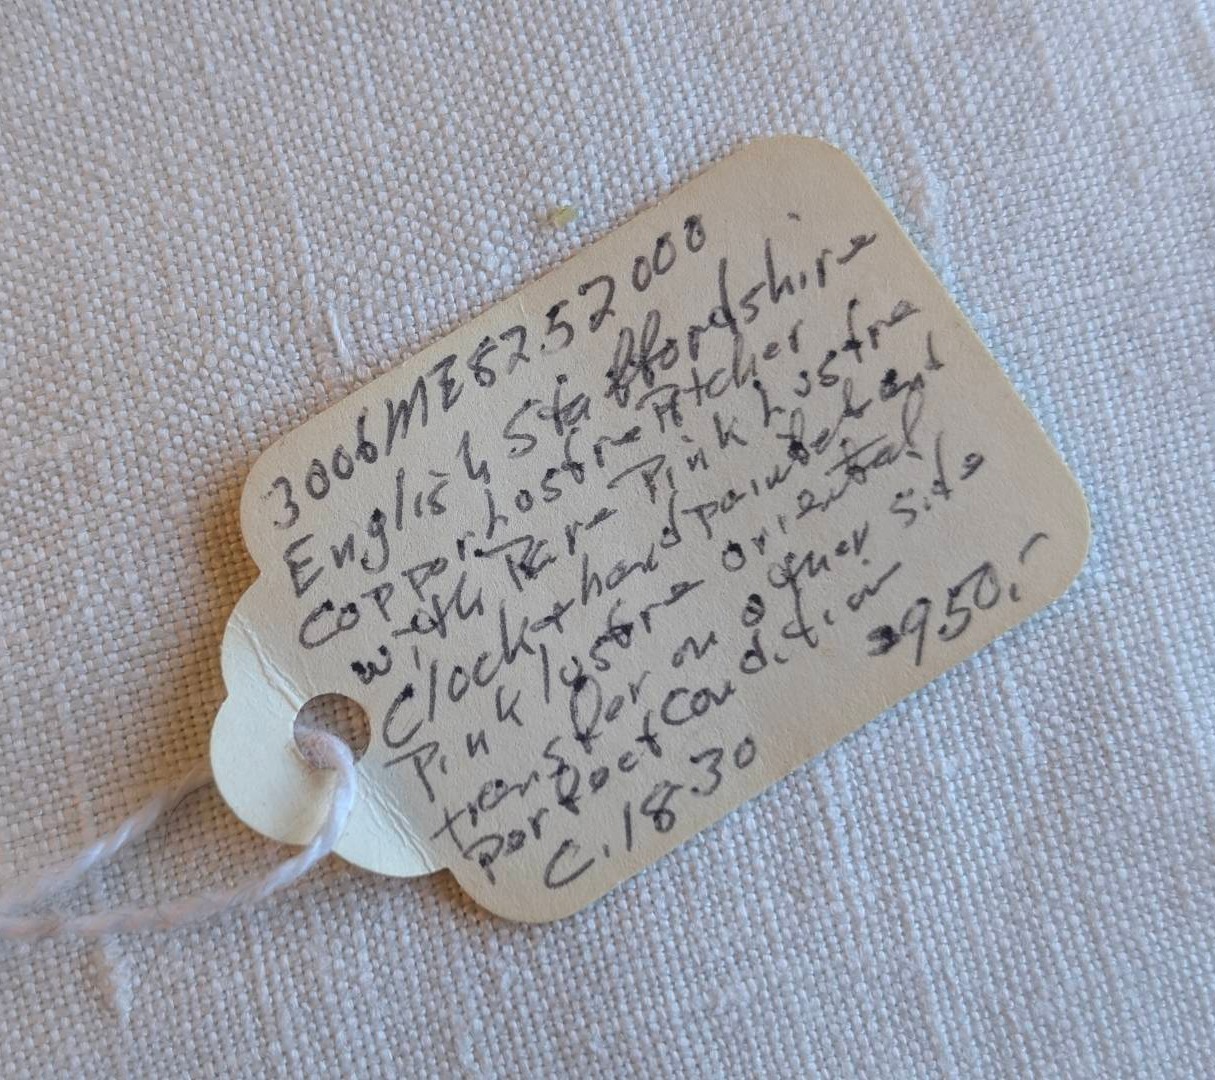 3006ME8252000
English Staffordshire
Copper Lostre Pitcher
with Rare Pink Lustre
Clock + hand painted and
Pink lostre oriental
transfer on other side
perfect condition
C. 1830 950.-